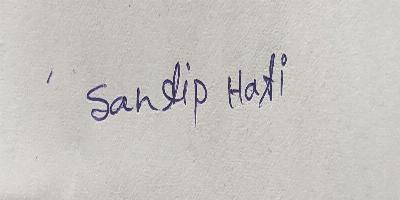 Sandip Hati